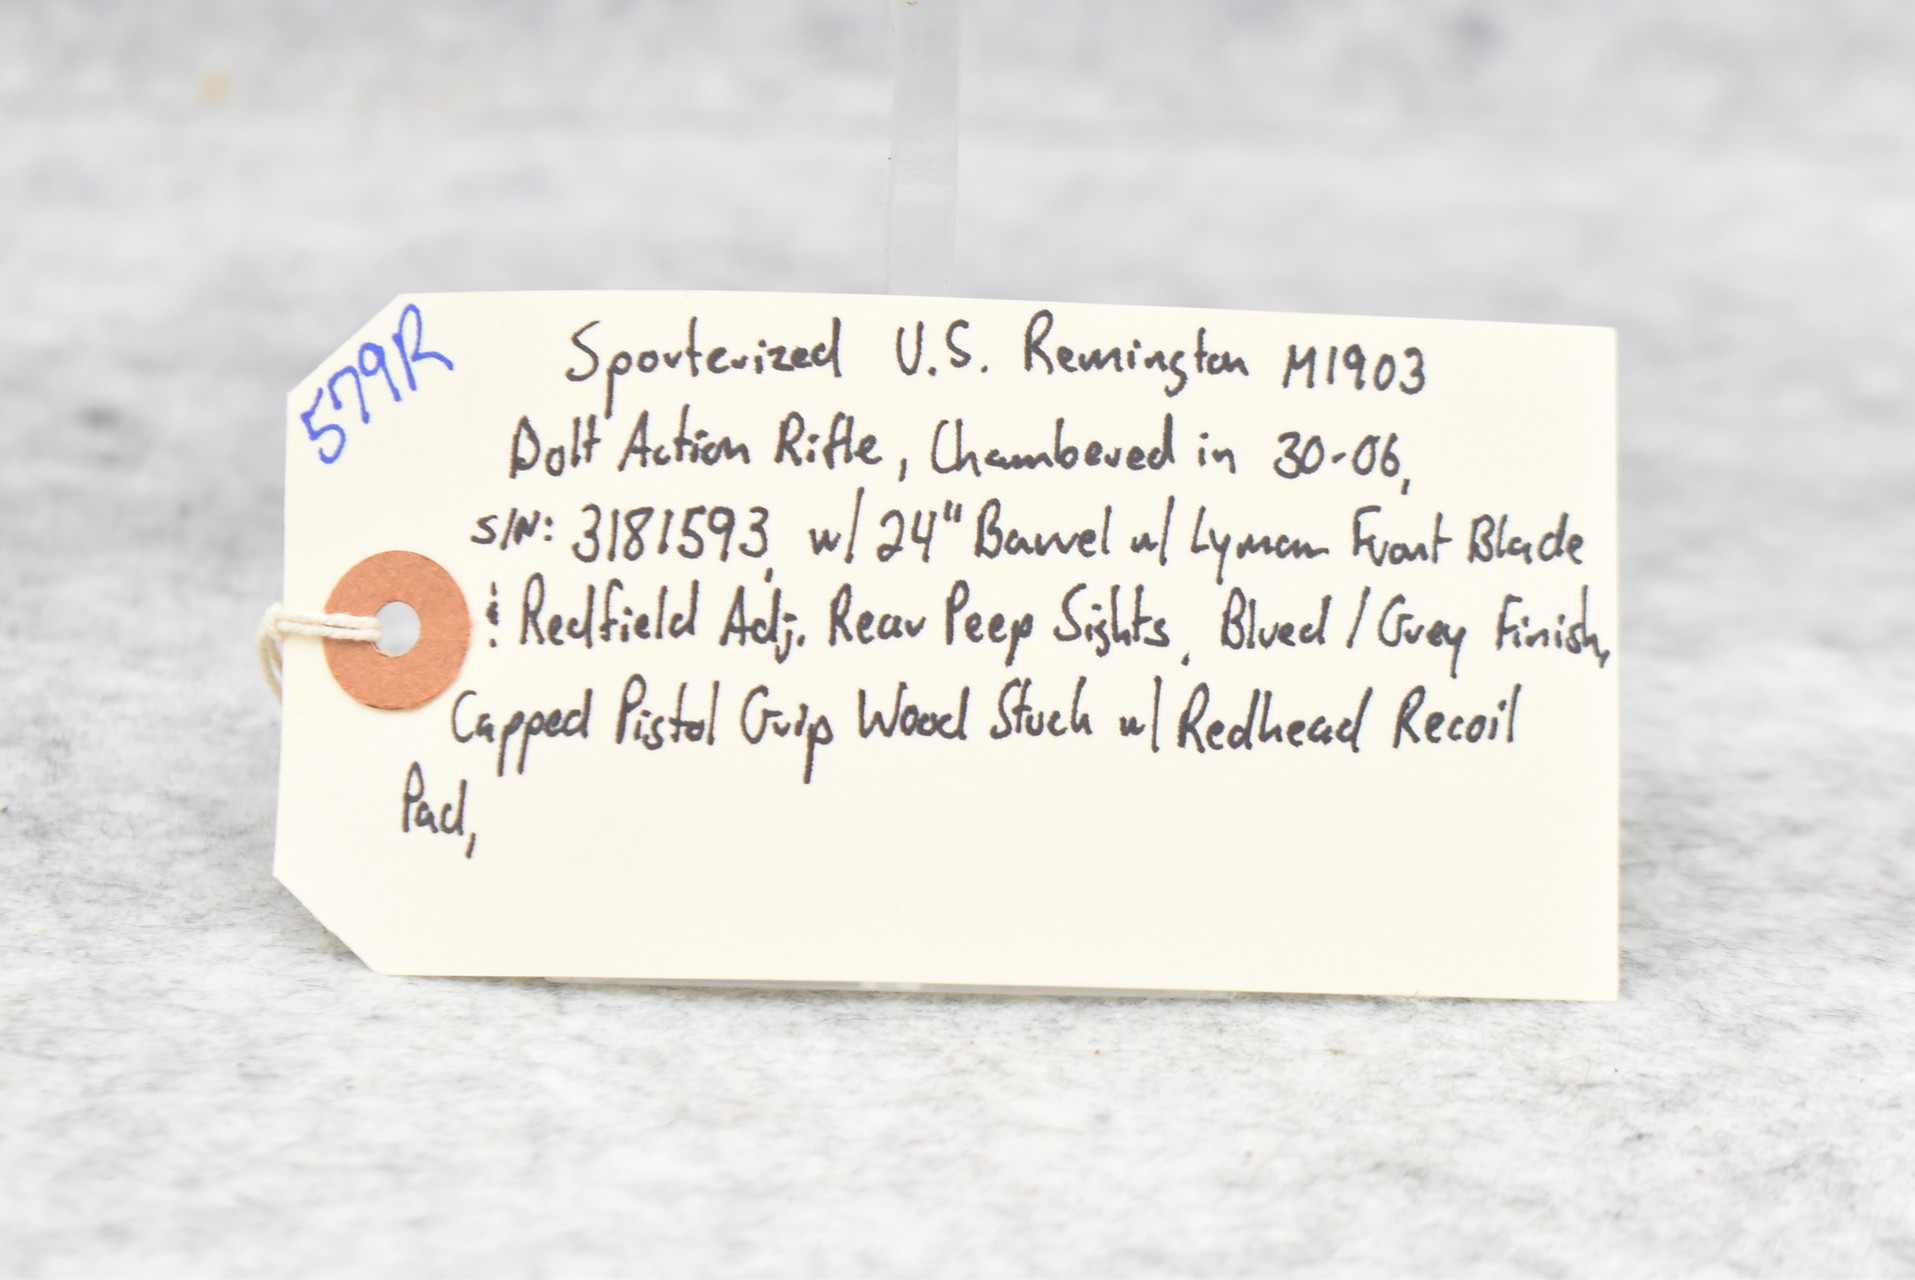 579R
Sporterized U.S. Remington M1903
Bolt Action Rifle, Chambered in 30-06,
S/N: 3181593, w/ 24" Barrel w/ Lyman Front Blade
& Redfield Adj. Rear Peep Sights, Blued / Grey Finish,
Capped Pistol Grip Wood Stock w/ Redhead Recoil
Pad,